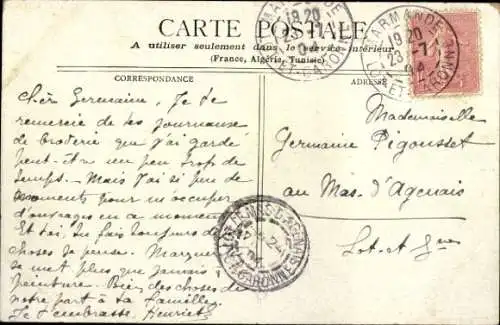 CARTE POSTALE
A utiliser seulement dans le service intérieur
(France, Algérie, Tunisie)
CORRESPONDANCE
ADRESSE
Chère Germaine, Je te
remercie de tes journaux
de broderie que j'ai gardé
peut-être un peu trop de
temps. Mais j'ai si peu de
moments pour m'occuper
d'ouvrages en ce moment
Et toi, tu fais toujours de
choses je pense. Marguerite
se met plus que jamais à
peinture. Bien des choses de
notre part à ta famille.
Je t'embrasse. Henriette
Mademoiselle
Germaine Pigousset
au Mas d'Agenais
Lot et Gne
MARMANDE
19 20
23 -7
04
LOT-ET-GARONNE
MARMANDE
19 20
23 -7
04
LOT-ET-GARONNE
LE MAS-D'AGENAIS
LOT-ET-GARONNE